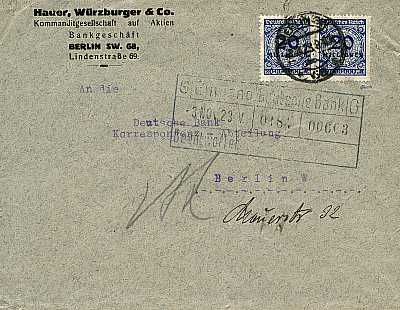 Hauer, Würzburger & Co.
Kommanditgesellschaft auf Aktien
Bankgeschäft
BERLIN SW. 68,
Lindenstraße 69.
Deutsches Reich
Deutsches Reich
An die
Deutsche Bank
Korrespondenz - Abteilung
Deutsche Bank
3 Nov. 23 V
Berlin W
Mauerstr 32